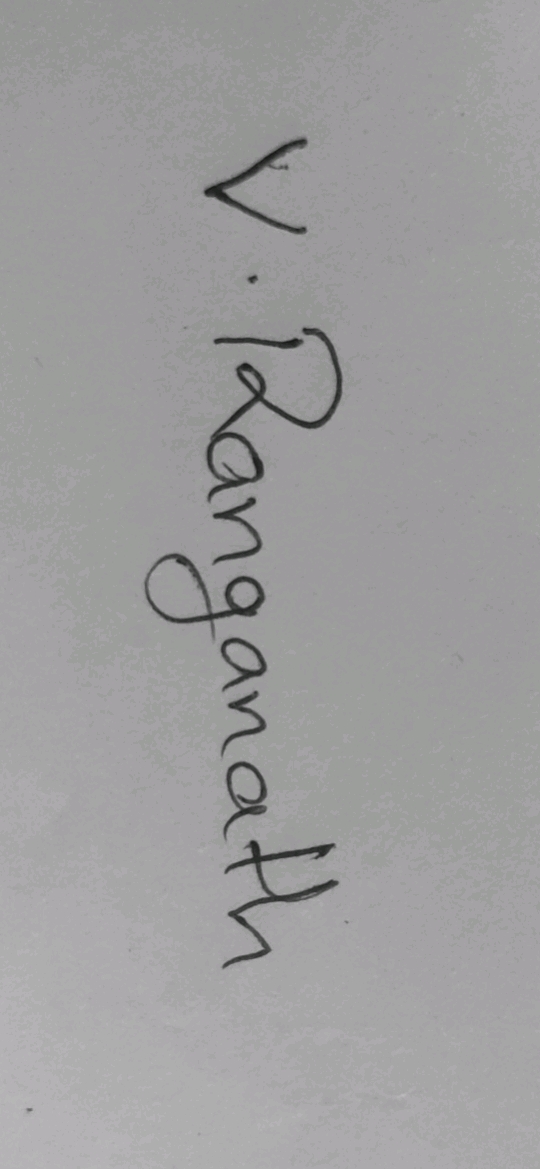 V. Ranganath